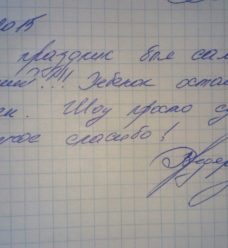 2015
праздник был сам
!!! Ребенок оста
Шоу просто су
спасибо!